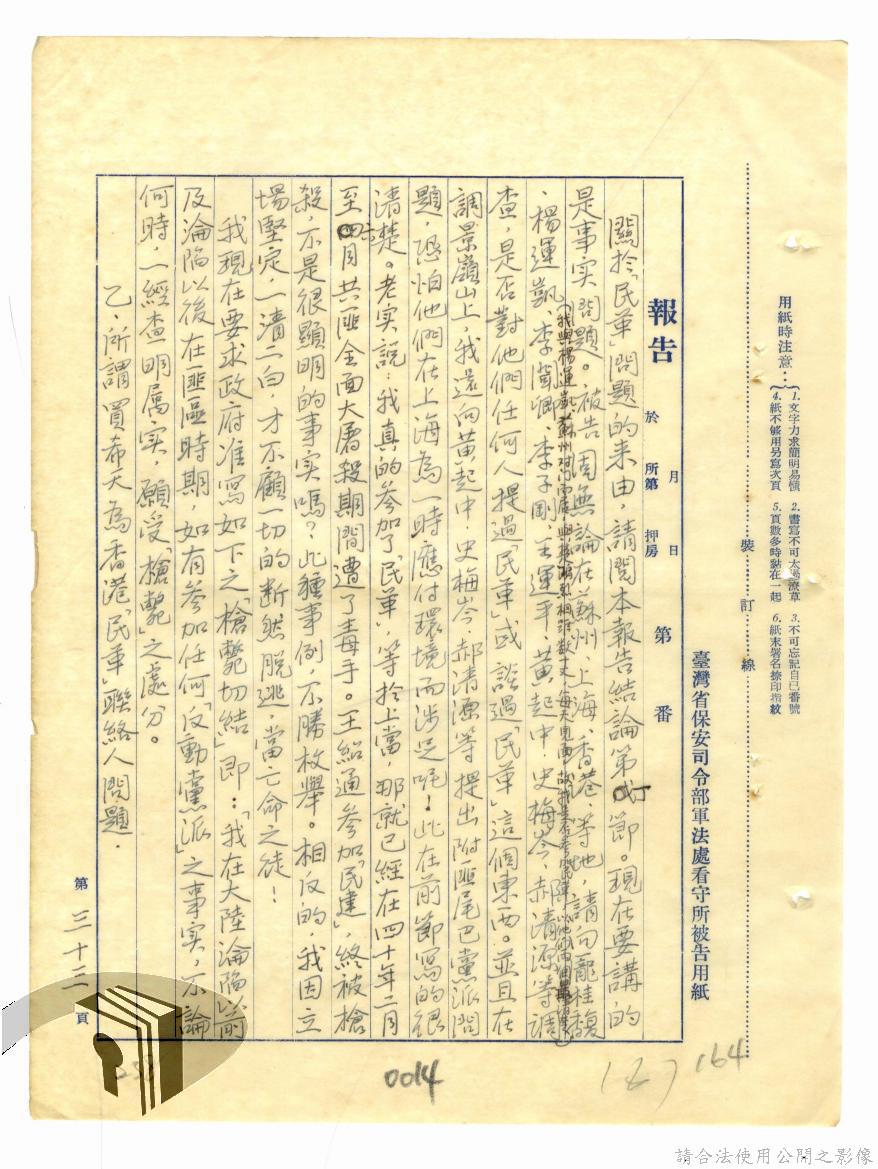 用紙時注意：
1.文字力求簡明易懂 2.書寫不可太過潦草 3.不可忘記自己番號
4.紙不够用另寫次頁 5.頁數多時黏在一起 6.紙末署名捺印指紋
裝訂線
臺灣省保安司令部軍法處看守所被告用紙
報告 於 所第 押房 月 日 第 番
關於「民革」問題的来由，請閱本報告結論第 節。現在要講的
是事实問題。被告周無論在蘇州、上海、香港、等地，請向龍桂馥
(我與楊運凱蘇州 每天見面
、楊運凱、李聞卿、李子剛、王運平、黃起中、史梅岑、郝清源等調
查，是否對他們任何人提過「民革」或談過「民革」這個東西。並且在
調景嶺山上，我還向黃起中、史梅岑、郝清源等提出附匪尾巴黨派問
題，恐怕他們在上海為一時應付環境而涉足呢！此在前節寫的很
清楚。老实說：我真的參加了「民革」，等於上當，那就已經在四十年二月
至 月共匪全面大屠殺期間遭了毒手。王紹通參加「民建」，終被槍
殺，不是很顯明的事实嗎？此種事例，不勝枚舉。相反的，我因立
場堅定，一清二白，才不顧一切的断然脱逃，當亡命之徒！
我現在要求政府准寫如下之「槍斃切結」即：「我在大陸淪陷以前
及淪陷以後在匪區時期，如有參加任何「反動黨派」之事实，不論
何時，一經查明属实，願受「槍斃」之處分。
乙、所謂買希天為香港「民革」聯絡人問題．
第 三十三 頁
0014
164
請合法使用公開之影像